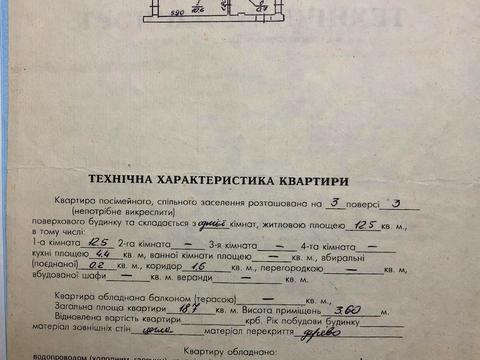 ТЕХНІЧНА ХАРАКТЕРИСТИКА КВАРТИРИ
Квартира посімейного, спільного заселення розташована на 3 поверсі 3
(непотрібне викреслити)
поверхового будинку та складається з одній кімнат, житловою площею 12.5 кв. м.,
в тому числі:
1-а кімната 12.5 2-га кімната — 3-я кімната — 4-та кімната —
кухні площею 4.4 кв. м, ванної кімнати площею — кв. м., вбиральні
(поєднаної) 0.2 кв. м., коридор 1.6 кв. м., перегородкою — кв. м,
вбудованої шафи — кв. м. веранди — кв. м.
Квартира обладнана балконом (терасою) — кв. м.,
Загальна площа квартири 18.7 кв. м. Висота приміщень 3.60 м.
Відновлена вартість квартири крб. Рік побудови будинку
матеріал зовнішніх стін матеріал перекриття дерево
Квартиру обладнано: